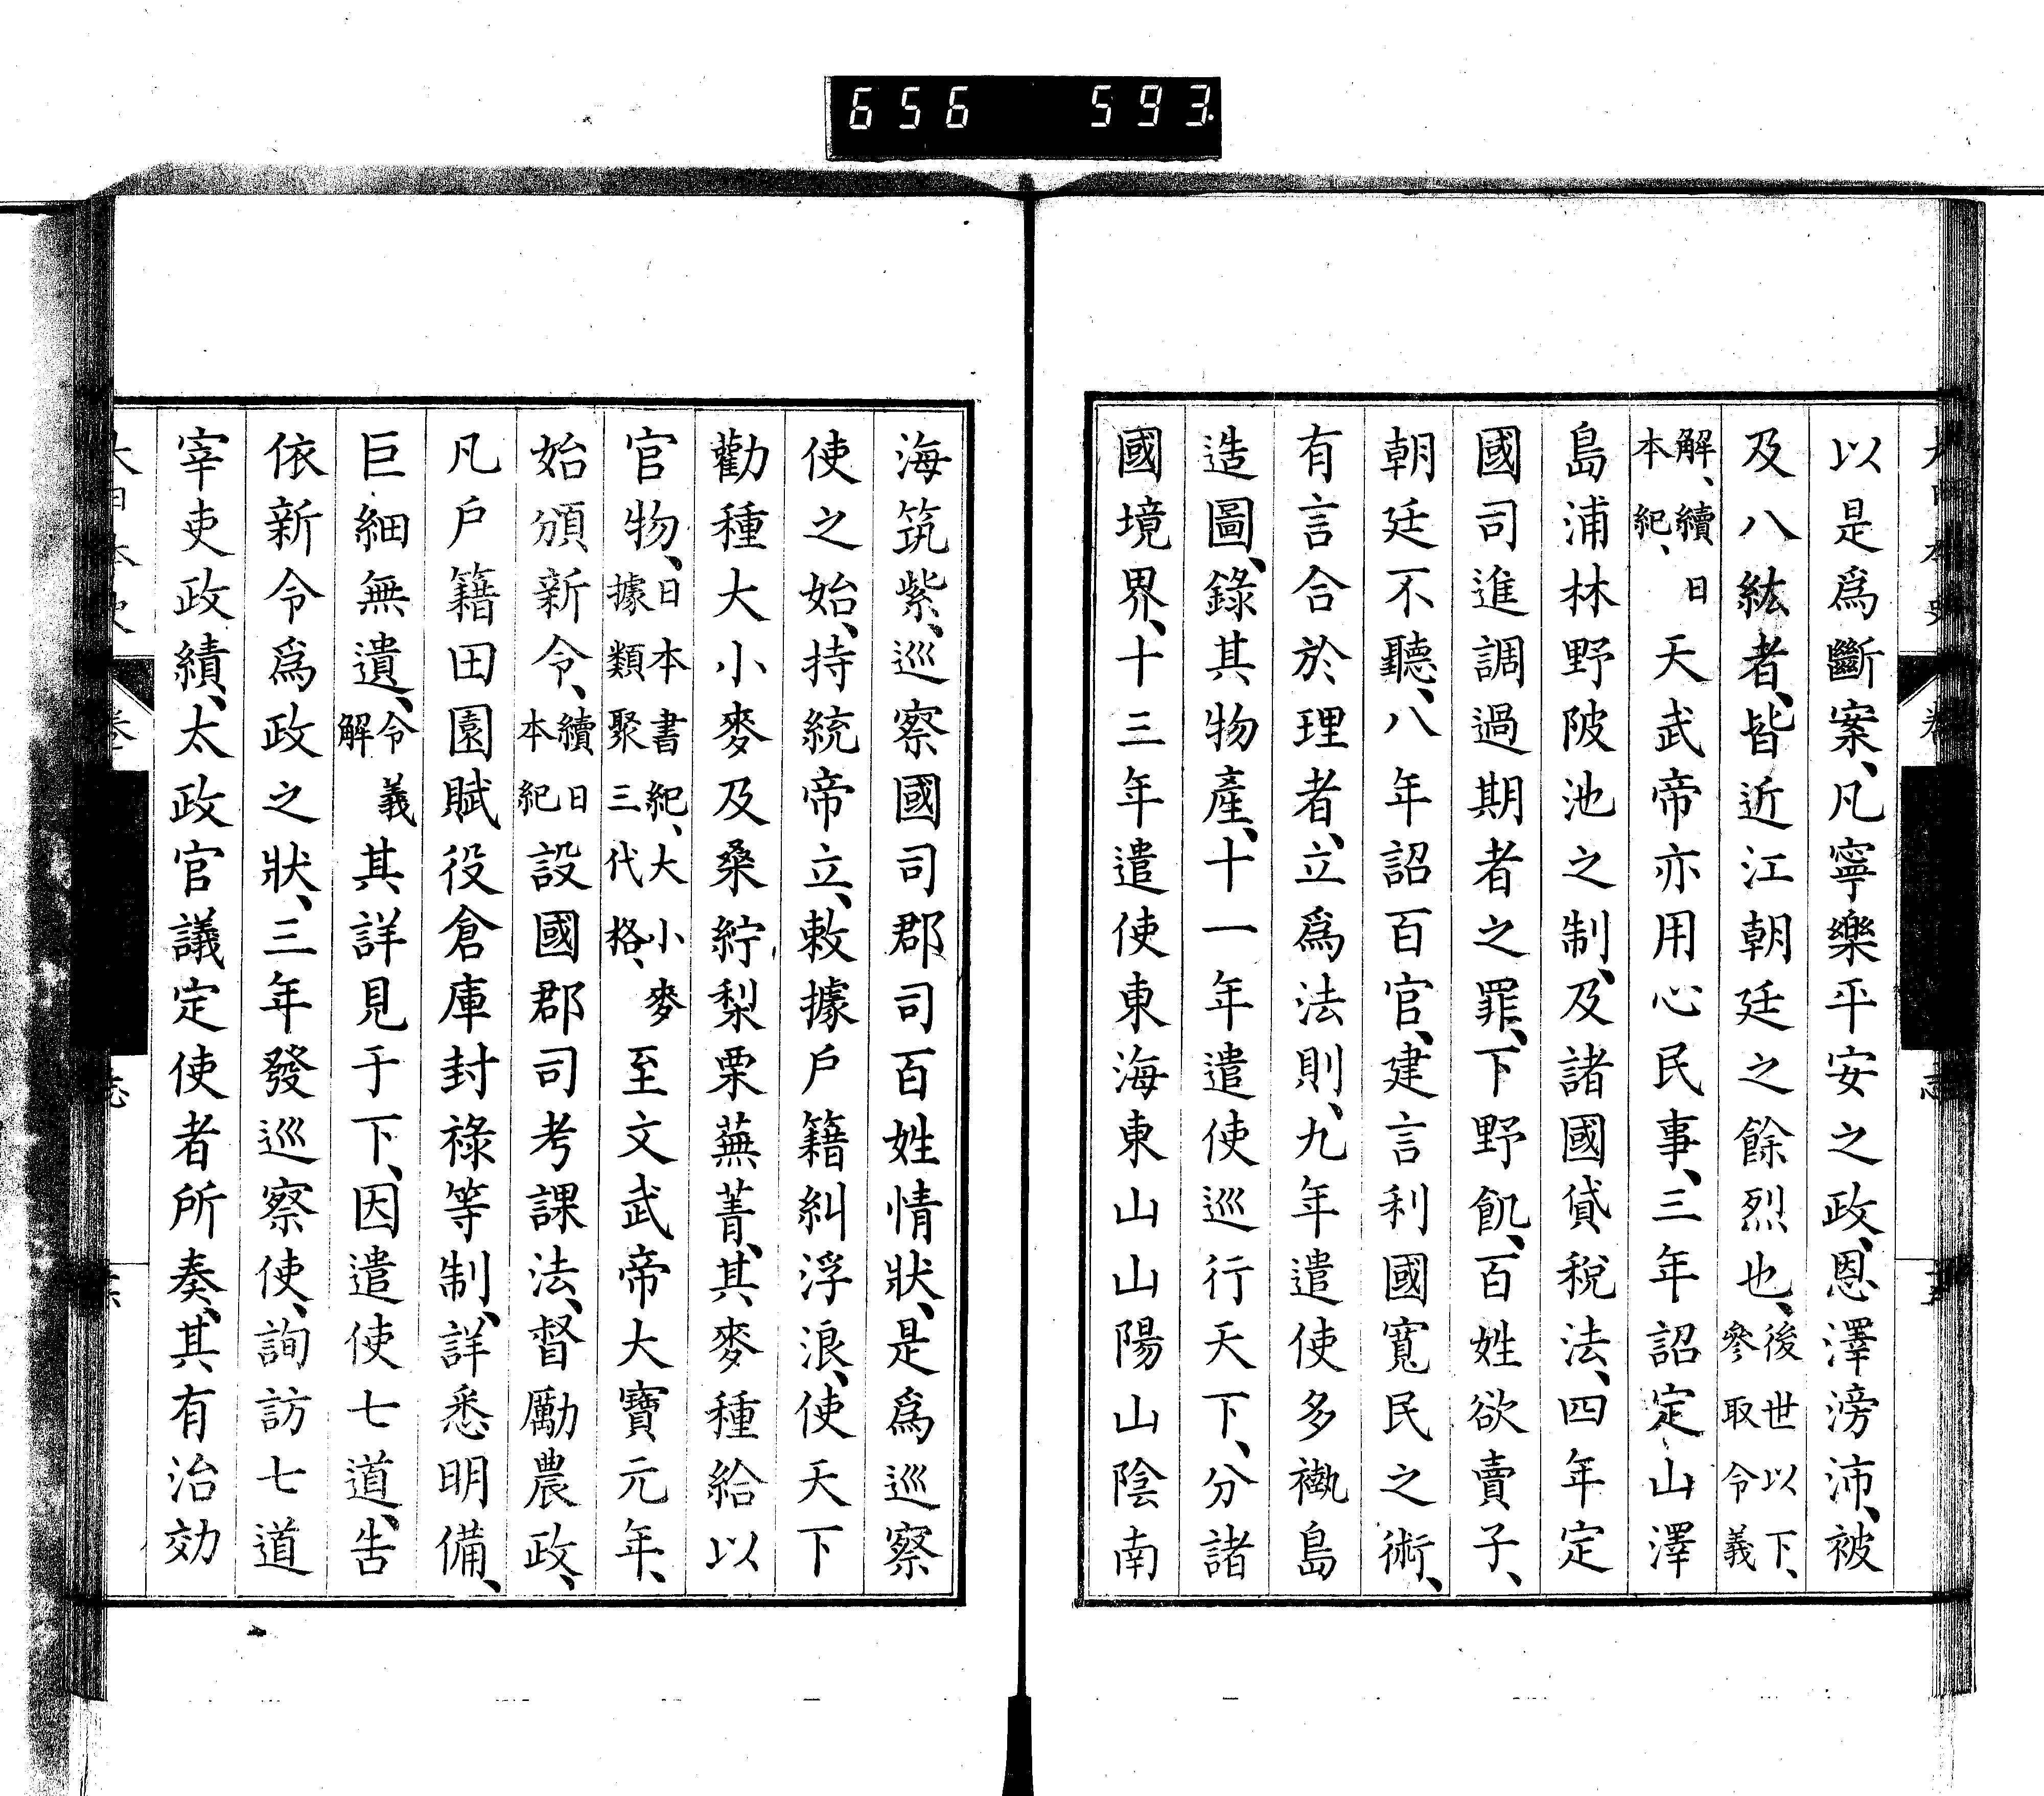 656 593
以是爲斷案、凡寧樂平安之政、恩澤滂沛、被
及八紘者、皆近江朝廷之餘烈也、後世以下、參取令義
解、續日本紀、天武帝亦用心民事、三年詔定山澤
島浦林野陂池之制、及諸國貸稅法、四年定
國司進調過期者之罪、下野飢、百姓欲賣子、
朝廷不聽、八年詔百官、建言利國寬民之術、
有言合於理者、立爲法則、九年遣使多褹島
造圖、錄其物產、十一年遣使巡行天下、分諸
國境界、十三年遣使東海東山山陽山陰南
海筑紫、巡察國司郡司百姓情狀、是爲巡察
使之始、持統帝立、敕據戶籍糾浮浪、使天下
勸種大小麥及桑紵梨栗蕪菁、其麥種給以
官物、日本書紀、大小麥據類聚三代格、至文武帝大寶元年、
始頒新令、續日本紀設國郡司考課法、督勵農政、
凡戶籍田園賦役倉庫封祿等制、詳悉明備、
巨細無遺、令義解其詳見于下、因遣使七道、告
依新令爲政之狀、三年發巡察使、詢訪七道
宰吏政績、太政官議定使者所奏、其有治効